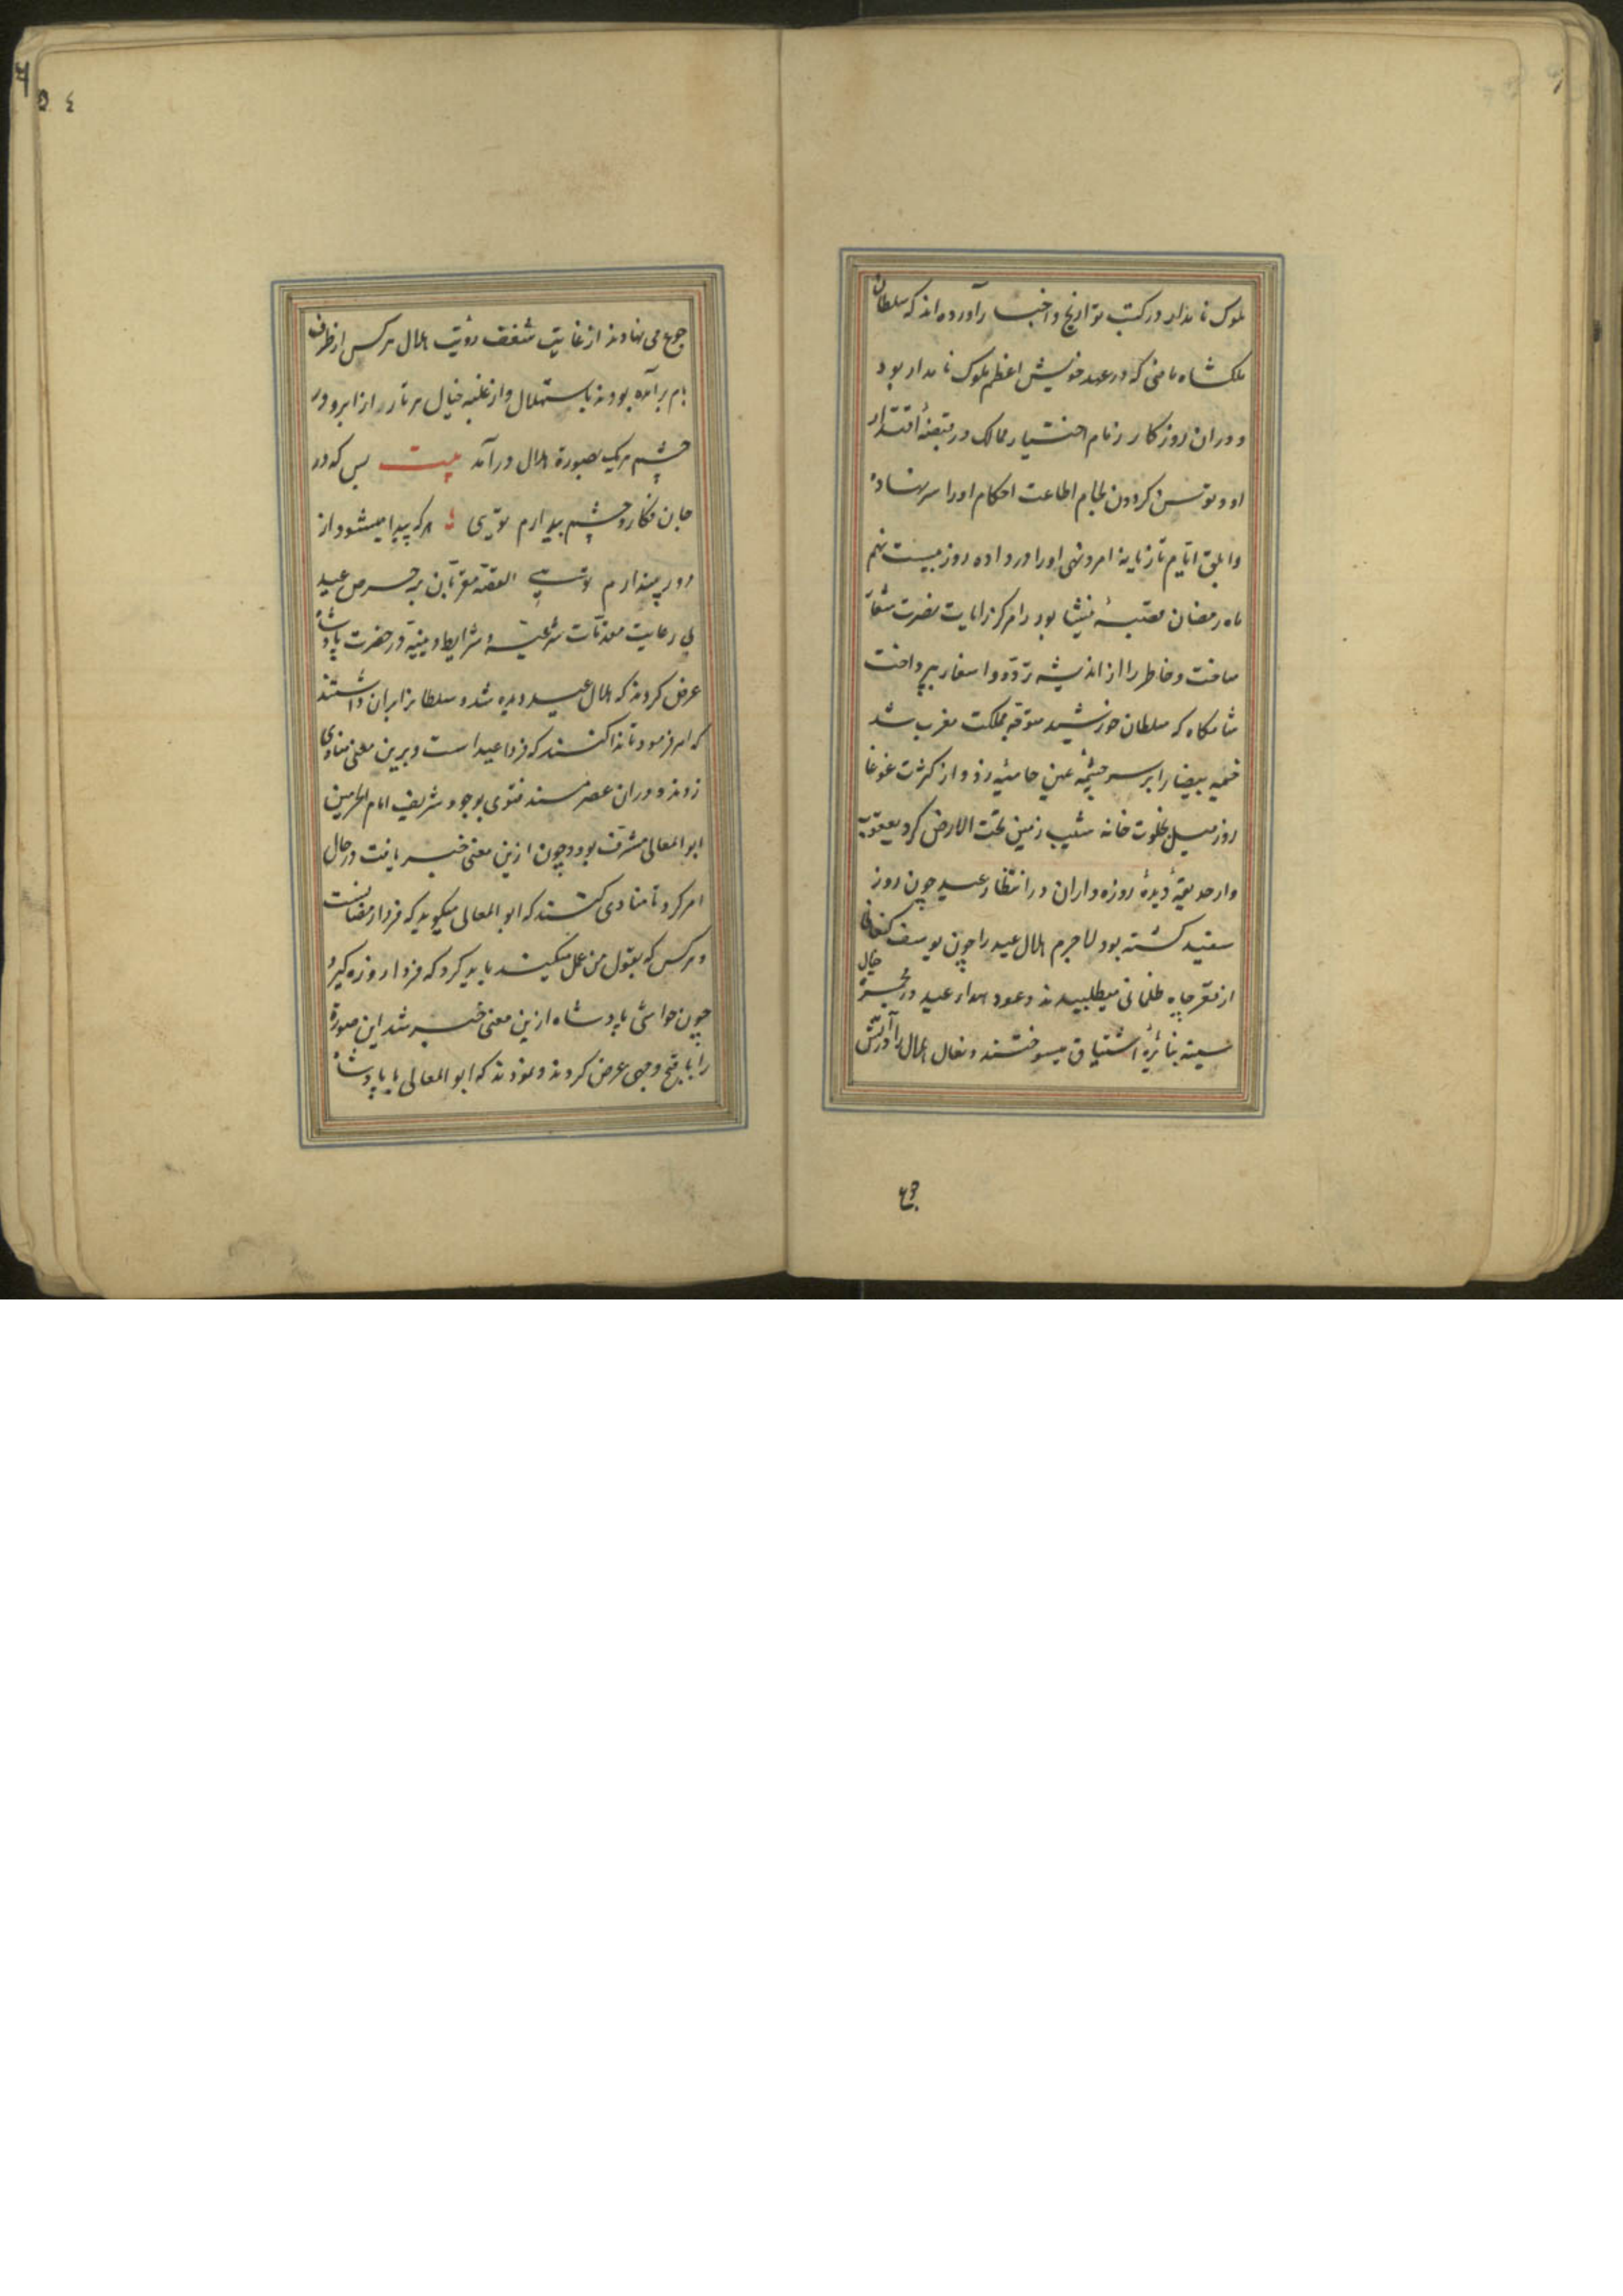 ملوک نامدار در کتب تواریخ و اخبار آورده اند که سلطان
ملکشاه ماضی که در عهد خویش اعظم ملوک نامدار بود
و دران روزکار زمام اختیار ممالک در قبضهٔ اقتدار
او و توسن کردون لجام اطاعت احکام او را سر نهاده
و ابلق ایام تازیانهٔ امر و نهی او را در داده روز بیست نهم
ماه رمضان قصبهٔ نیشابور را مرکز رایات نصرت شعار
ساخت و خاطر را از اندیشه تردد و اسفار بپرداخت
شامکاه که سلطان خورشید متوجه مملکت مغرب شد
خیمه بیضا را بر سر چشمه عین حامیه زد و از کثرت غوغا
روز میل بخلوت خانه شیب زمین تحت الارض کرد یعقوب
وار حدیقهٔ دیدهٔ روزه داران در انتظار عید چون روز
سفید کشته بود لاجرم هلال عید را چون یوسف کنعانی
از قعر چاه ظلمانی میطلبیدند و عود سودای عید در مجمر
خیال
سینه بنائرهٔ اشتیاق میسوختند و نعال هلال را در آتش
جوع
۵۴
جوع می نهادند از غایت شغف رؤیت هلال هرکس از طرف
بام برآمده بودند باستهلال و از غلبه خیال هر تار از ابرو در
چشم هریک بصورة هلال در آمد بیت بس که در
جان فکار و چشم بیدارم تویی هرکه پیدا میشود از
دور پندارم تویی القصه مقربان بر حرص عید
بی رعایت مقدمات شرعیه و شرایط دینیه در حضرت پادشاه
عرض کردند که هلال عید دیده شد و سلطان را بران داشتند
که امر فرمود تا ندا کنند که فردا عید است و برین معنی منادی
زدند و دران عصر مسند فتوی بوجود شریف امام الحرمین
ابو المعالی مشرف بود و چون ازین معنی خبر یافت در حال
امر کرد تا منادی کنند که ابو المعالی میکوید که فردا رمضانست
و هرکس که بقول من عمل میکند باید کرد که فردا روزه کیرد
چون حواشی پادشاه ازین معنی خبر شد این صورة
را باقبح وجهی عرض کردند و نمودند که ابو المعالی با پادشاه